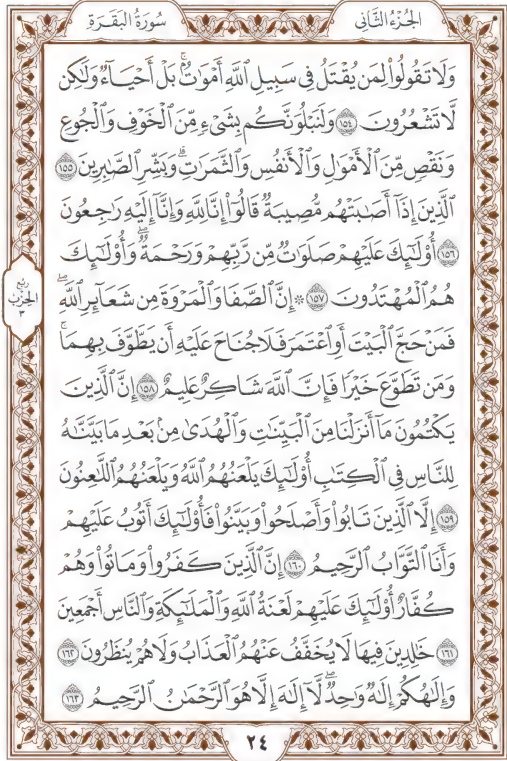 الجُزْءُ الثَّانِي
سُورَةُ البَقَرَةِ
وَلَا تَقُولُواْ لِمَن يُقۡتَلُ فِي سَبِيلِ ٱللَّهِ أَمۡوَٰتُۢۚ بَلۡ أَحۡيَآءٞ وَلَٰكِن
لَّا تَشۡعُرُونَ ١٥٤ وَلَنَبۡلُوَنَّكُم بِشَيۡءٖ مِّنَ ٱلۡخَوۡفِ وَٱلۡجُوعِ
وَنَقۡصٖ مِّنَ ٱلۡأَمۡوَٰلِ وَٱلۡأَنفُسِ وَٱلثَّمَرَٰتِۗ وَبَشِّرِ ٱلصَّٰبِرِينَ ١٥٥
ٱلَّذِينَ إِذَآ أَصَٰبَتۡهُم مُّصِيبَةٞ قَالُوٓاْ إِنَّا لِلَّهِ وَإِنَّآ إِلَيۡهِ رَٰجِعُونَ
١٥٦ أُوْلَٰٓئِكَ عَلَيۡهِمۡ صَلَوَٰتٞ مِّن رَّبِّهِمۡ وَرَحۡمَةٞۖ وَأُوْلَٰٓئِكَ
هُمُ ٱلۡمُهۡتَدُونَ ١٥٧ ۞ إِنَّ ٱلصَّفَا وَٱلۡمَرۡوَةَ مِن شَعَآئِرِ ٱللَّهِۖ
فَمَنۡ حَجَّ ٱلۡبَيۡتَ أَوِ ٱعۡتَمَرَ فَلَا جُنَاحَ عَلَيۡهِ أَن يَطَّوَّفَ بِهِمَاۚ
وَمَن تَطَوَّعَ خَيۡرٗا فَإِنَّ ٱللَّهَ شَاكِرٌ عَلِيمٌ ١٥٨ إِنَّ ٱلَّذِينَ
يَكۡتُمُونَ مَآ أَنزَلۡنَا مِنَ ٱلۡبَيِّنَٰتِ وَٱلۡهُدَىٰ مِنۢ بَعۡدِ مَا بَيَّنَّٰهُ
لِلنَّاسِ فِي ٱلۡكِتَٰبِ أُوْلَٰٓئِكَ يَلۡعَنُهُمُ ٱللَّهُ وَيَلۡعَنُهُمُ ٱللَّٰعِنُونَ
١٥٩ إِلَّا ٱلَّذِينَ تَابُواْ وَأَصۡلَحُواْ وَبَيَّنُواْ فَأُوْلَٰٓئِكَ أَتُوبُ عَلَيۡهِمۡ
وَأَنَا ٱلتَّوَّابُ ٱلرَّحِيمُ ١٦٠ إِنَّ ٱلَّذِينَ كَفَرُواْ وَمَاتُواْ وَهُمۡ
كُفَّارٌ أُوْلَٰٓئِكَ عَلَيۡهِمۡ لَعۡنَةُ ٱللَّهِ وَٱلۡمَلَٰٓئِكَةِ وَٱلنَّاسِ أَجۡمَعِينَ
١٦١ خَٰلِدِينَ فِيهَا لَا يُخَفَّفُ عَنۡهُمُ ٱلۡعَذَابُ وَلَا هُمۡ يُنظَرُونَ ١٦٢
وَإِلَٰهُكُمۡ إِلَٰهٞ وَٰحِدٞۖ لَّآ إِلَٰهَ إِلَّا هُوَ ٱلرَّحۡمَٰنُ ٱلرَّحِيمُ ١٦٣
ربع
الحزب
٣
٢٤